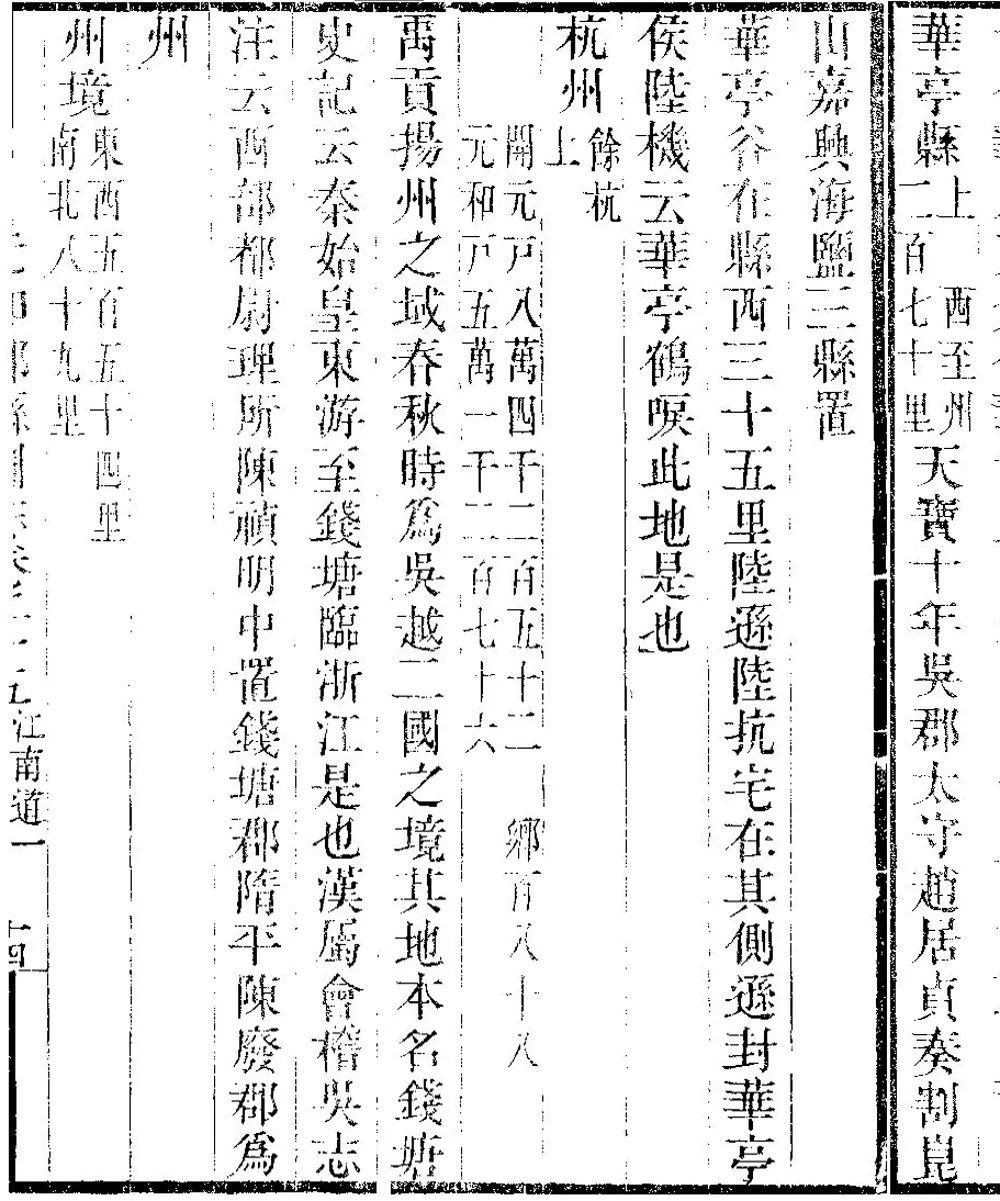 華亭縣上 西至州二百七十里天寶十年吳郡太守趙居貞奏割崑
山嘉興海鹽三縣置
華亭谷在縣西三十五里陸遜陸抗宅在其側遜封華亭
侯陸機云華亭鶴唳此地是也
杭州餘杭上
開元戶八萬四千二百五十二 鄉百八十八
元和戶五萬一千二百七十六
禹貢揚州之域春秋時爲吳越二國之境其地本名錢塘
史記云秦始皇東游至錢塘臨浙江是也漢屬會稽吳志
注云西部都尉理所陳禎明中置錢塘郡隋平陳廢郡爲
州
州境東西五百五十四里南北八十九里
江南道一 十四